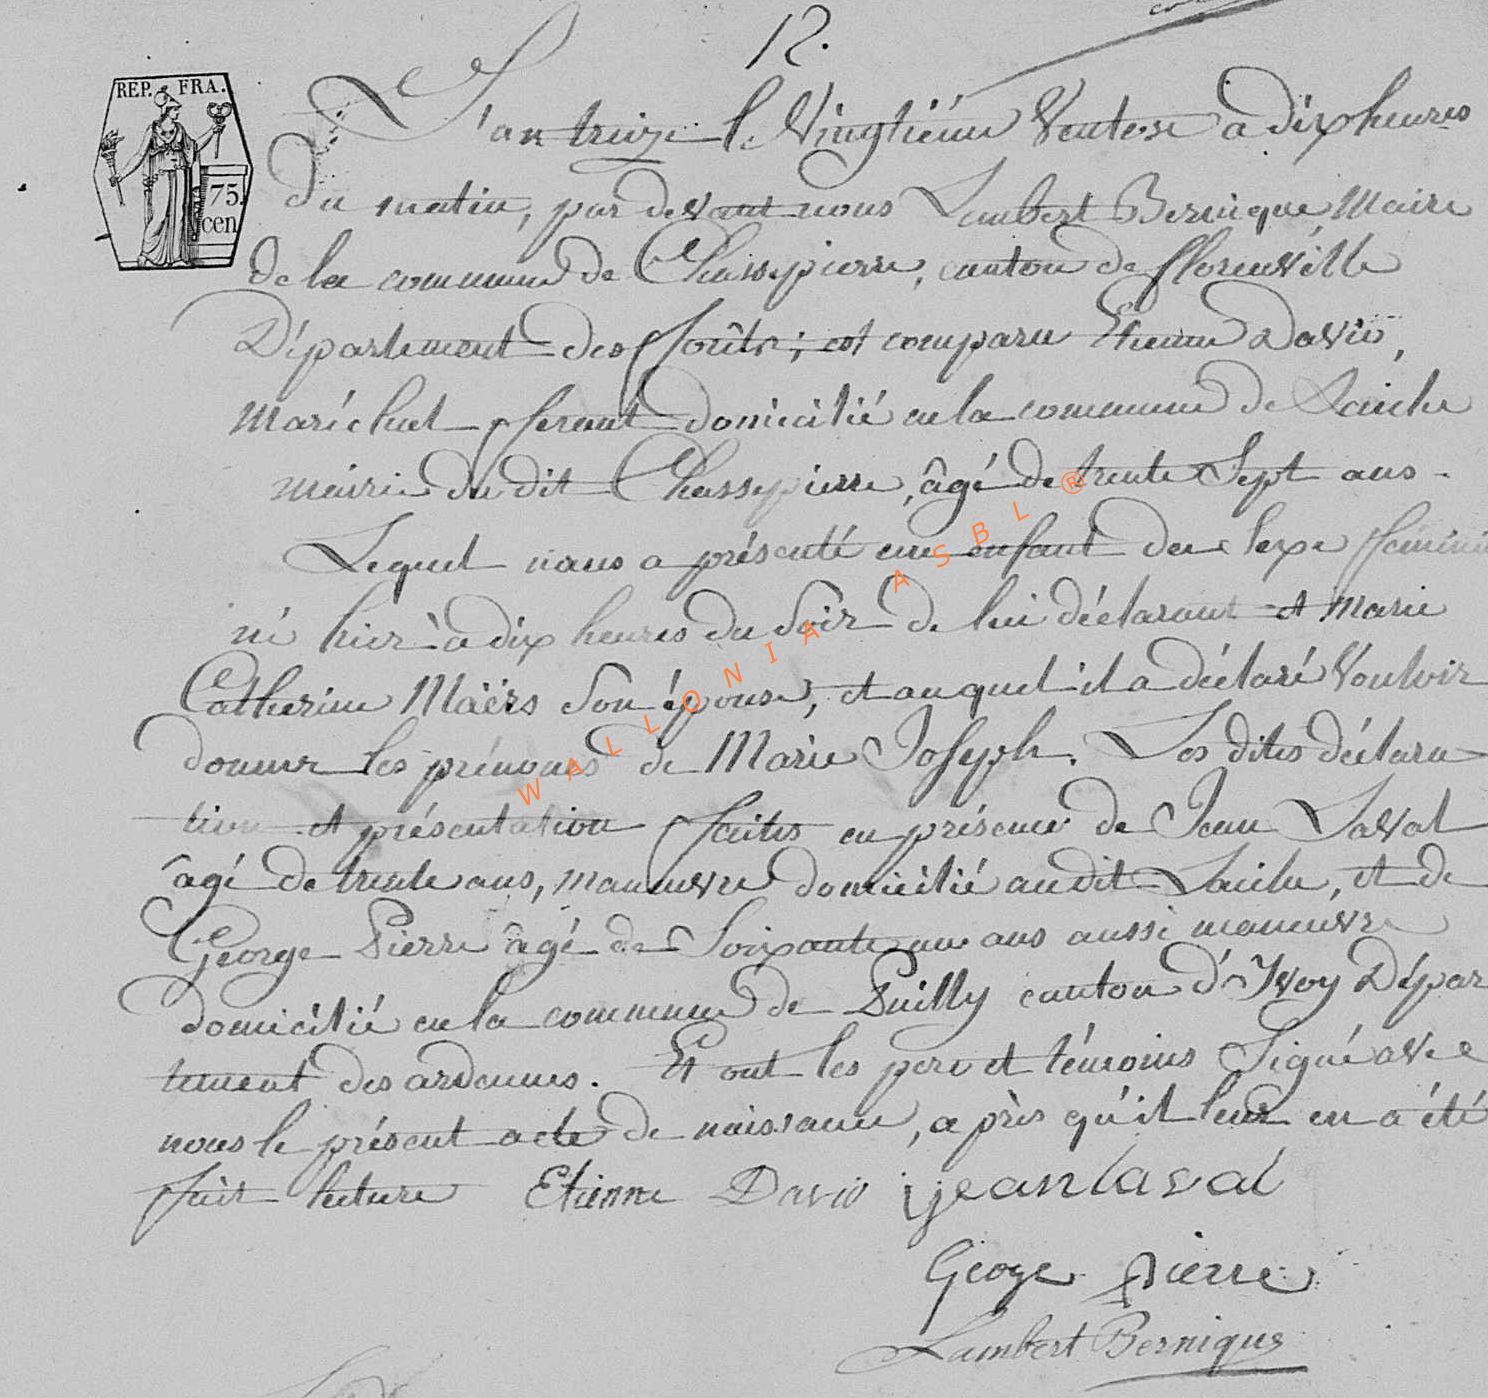 12.
REP. FRA.
75.
cen
L'an treize le Vingtième Ventose a dix heures
Du matin, par devant nous Lambert Bernique Maire
de la commune de Chassepierre, canton de florenville
Département des forêts ; est comparu Etienne David,
Maréchal ferant domicilié en la commune de Laiche
mairie du dit Chassepierre, âgé de trente Sept ans -
Lequel nous a présenté un enfant du Sexe feminin
né hier à dix heures du Soir de lui déclarant et Marie
Catherine Maërs Son épouse, et auquel il a déclaré Vouloir
donner les prénoms de Marie Joseph. Les dites déclara
tion et présentation faites en présence de Jean Laval
âgé de trente ans, manœuvre domicilié au dit Laiche, et de
George Pierre âgé de Soixante un ans aussi manœuvre
domicilié en la commune de Puilly canton d'Yvoy Dépar
tement des ardennes. Et ont les pere et témoins Signé avec
nous le présent acte de naissance, après qu'il leur en a été
fait lecture Etienne David jean laval
Geoge pierre
Lambert Bernique
WALLONIA ASBL ®